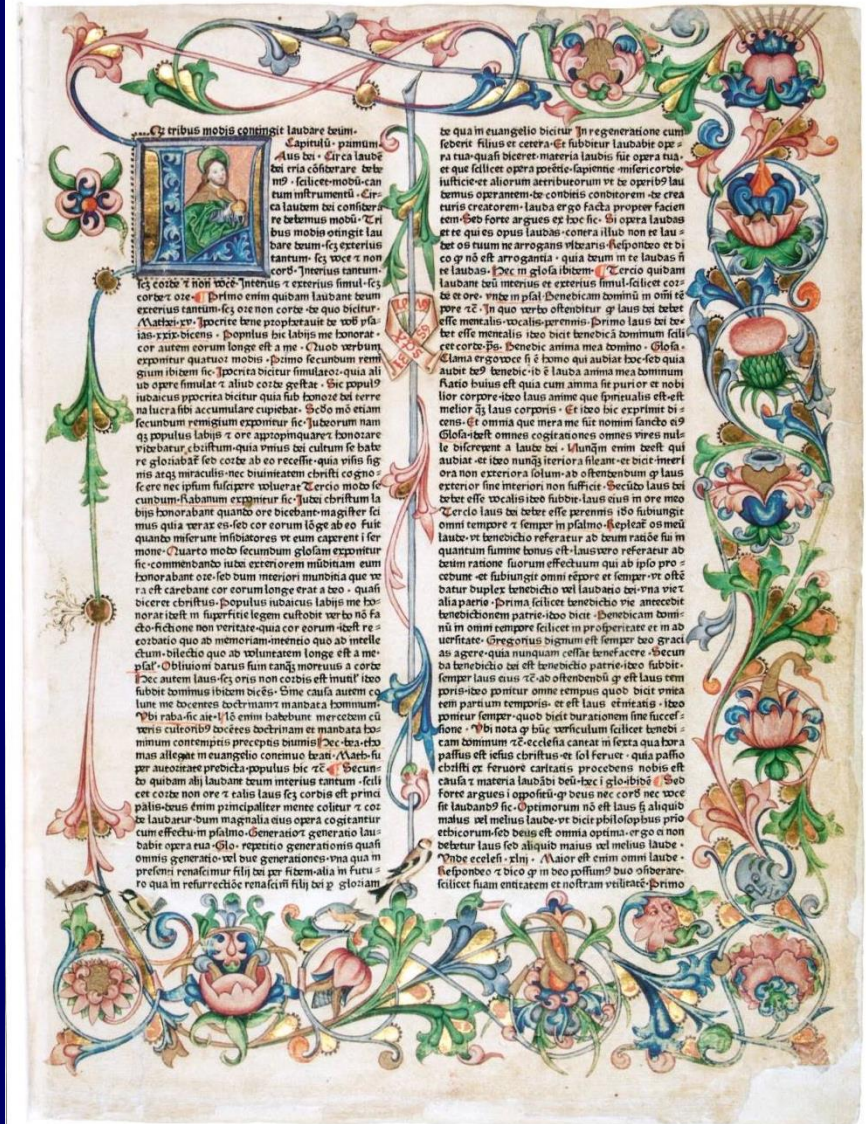 De tribus modis contingit laudare deum·
Capitulū· primum·
Laus dei· Circa laudē
dei tria cōsiderare debe
m9· scilicet modū·can
tum instrumentū· Cir-
ca laudem dei considerā
re debemus modū· Tri
bus modis otingit lau
dare deum·scꝫ exterius
tantum· scꝫ voce ⁊ non
corde· Interius tantum·
scꝫ corde ⁊ non voce·Interius ⁊ exterius simul·scꝫ
corde ⁊ ore· Primo enim quidam laudant deum
exterius tantum·scꝫ ore non corde·de quo dicitur·
Mathei·xv· Ipocrite bene prophetauit de vob ysa-
ias·xxix·dicens· Populus hic labijs me honorat·
cor autem eorum longe est a me· Quod verbum
exponitur quatuor modis· Primo secundum remi
gium ibidem sic· Ipocrita dicitur simulator·quia ali
ud opere simulat ⁊ aliud corde gestat· Sic popul9
iudaicus ypocrita dicitur quia sub honore dei terre
na lucra sibi accumulare cupiebat· Scdo mō etiam
secundum remigium exponitur sic· Iudeorum nam
qꝫ populus labijs ⁊ ore appropinquare ⁊ honorare
videbatur christum·quia vnius dei cultum se habe
re gloriabat sed corde ab eo recessit·quia visis sig
nis atqꝫ miraculis·nec diuinitatem christi cogno-
scere nec ipsum suscipere voluerat Tercio modo se
cundum Rabanum exponitur sic· Iudei christum la
bijs honorabant quando ore dicebant·magister sci
mus quia verax es·sed cor eorum lōge ab eo fuit
quando miserunt insidiatores vt eum caperent i ser
mone· Quarto modo secundum glosam exponitur
sic·commendando iudei exteriorem mūditiam eum
honorabant ore·sed dum interiori munditia que ve
ra est carebant cor eorum longe erat a deo· quasi
diceret christus·Populus iudaicus labijs me ho-
norat idest in superficie legem custodit verbo nō fa
cto·fictione non veritate·quia cor eorum·idest re-
cordatio quo ad memoriam·intentio quo ad intelle
ctum·dilectio quo ad voluntatem longe est a me·
psal· Obliuioni datus sum tanqꝫ mortuus a corde
Hec autem laus·scꝫ oris non cordis est inutil· ideo
subdit dominus ibidem dicēs· Sine causa autem co
lunt me docentes doctrinam ⁊ mandata hominum·
Vbi raba·sic aie· Nō enim habebunt mercedem cū
veris cultorib9 docētes doctrinam et mandata ho-
minum contemptis preceptis diuinis Hec·bea·tho
mas allegat in euangelio continuo beati·Math·su
per autoritate predicta·populus hic ⁊c̄· Secun-
do quidam alij laudant deum interius tantum·scili
cet corde non ore ⁊ talis laus scꝫ cordis est princi
palis·deus enim principaliter mente colitur ⁊ cor
de laudatur·dum magnalia eius opera cogitantur
cum effectu·in psalmo·Generatio ⁊ generatio lau-
dabit opera tua·Glo· repetitio generationis quasi
omnis generatio·vel due generationes·vna qua in
presenti renascimur filij dei per fidem·alia in futu-
ro qua in resurrectiōe renascim filij dei p gloriam
de qua in euangelio dicitur In regeneratione cum
sederit filius et cetera·Et subditur laudabit ope-
ra tua·quasi diceret·materia laudis sūt opera tua·
et que scilicet opera potētie·sapientie·misericordie·
iusticie·et aliorum attributorum vt de operib9 lau
demus operantem·de conditis conditorem·de crea
turis creatorem·lauda ergo facta propter facien
tem·Sed forte argues ex hoc sic· Si opera laudas
et te qui es opus laudas·contra illud non te lau-
det os tuum ne arrogans videaris·Respondeo et di
co ꝙ nō est arrogantia· quia deum in te laudas n̄
te laudas· Hec in glosa ibidem· Tercio quidam
laudant deū interius et exterius simul·scilicet cor-
de et ore· vnde in psal· Benedicam dominū in omi tē
pore ⁊c̄· In quo verbo ostenditur ꝙ laus dei debet
esse mentalis·vocalis·perennis·Primo laus dei de-
bet esse mentalis ideo dicit benedicā dominum scili
cet corde·ps· Benedic anima mea domino· Glosa·
Clama ergo voce si ē homo qui audiat hoc·sed quia
audit de9 benedic·id ē lauda anima mea dominum
Ratio huius est quia cum anima sit purior et nobi
lior corpore·ideo laus anime que spiritualis est·est
melior qꝫ laus corporis· Et ideo hic exprimit di-
cens·Et omnia que intra me sūt nomini sancto ei9
Glosa·idest omnes cogitationes omnes vires nul-
le discrepent a laude dei· Nunqm enim deest qui
audiat·et ideo nunqꝫ iteriora sileant·et dicit·interi
ora non exteriora solum·ad ostendendum ꝙ laus
exterior sine interiori non sufficit·Secūdo laus dei
debet esse vocalis ideo subdit·laus eius in ore meo
Tercio laus dei debet esse perennis ido subiungit
omni tempore ⁊ semper in psalmo·Repleat os meū
laude·vt benedictio referatur ad deum ratiōe sui in
quantum summe bonus est·laus vero referatur ad
deum ratione suorum effectuum qui ab ipso pro-
cedunt·et subiungit omni tēpore et semper·vt ostē
datur duplex benedictio vel laudatio dei·vna vie ⁊
alia patrie·Prima scilicet benedictio vie antecedit
benedictionem patrie·ideo dicit·Benedicam domi-
nū in omni tempore scilicet in prosperitate et in ad
uersitate· Gregorius dignum est semper deo graci
as agere·quia nunquam cessat benefacere·Secun
da benedictio dei est benedictio patrie·ideo subdit·
semper laus eius ⁊c̄·ad ostendendū ꝙ est laus tem
poris·ideo ponitur omne tempus quod dicit vnita
tem partium temporis· et est laus etnitatis· ideo
ponitur semper·quod dicit durationem sine succes-
sione· Vbi nota ꝙ hūc versiculum scilicet benedi-
cam dominum ⁊c̄·ecclesia cantat in sexta qua hora
passus est iesus christus·et sol feruet· quia passio
christi ex feruore caritatis procedens nobis est
causa ⁊ materia laudādi deū·hec i glo·ibidē Sed
forte argues i oppositū·ꝙ deus nec cord nec voce
sit laudand9 sic·Optimorum nō est laus sꝫ aliquid
maius vel melius laude·vt dicit philosophus prio
ethicorum·sed deus est omnia optima·ergo ei non
debetur laus sed aliquid maius vel melius laude·
Vnde ecclesi·xliij· Maior est enim omni laude·
Respondeo ⁊ dico ꝙ in deo possum9 duo osiderare·
scilicet suam entitatem et nostram vtilitatē·Primo